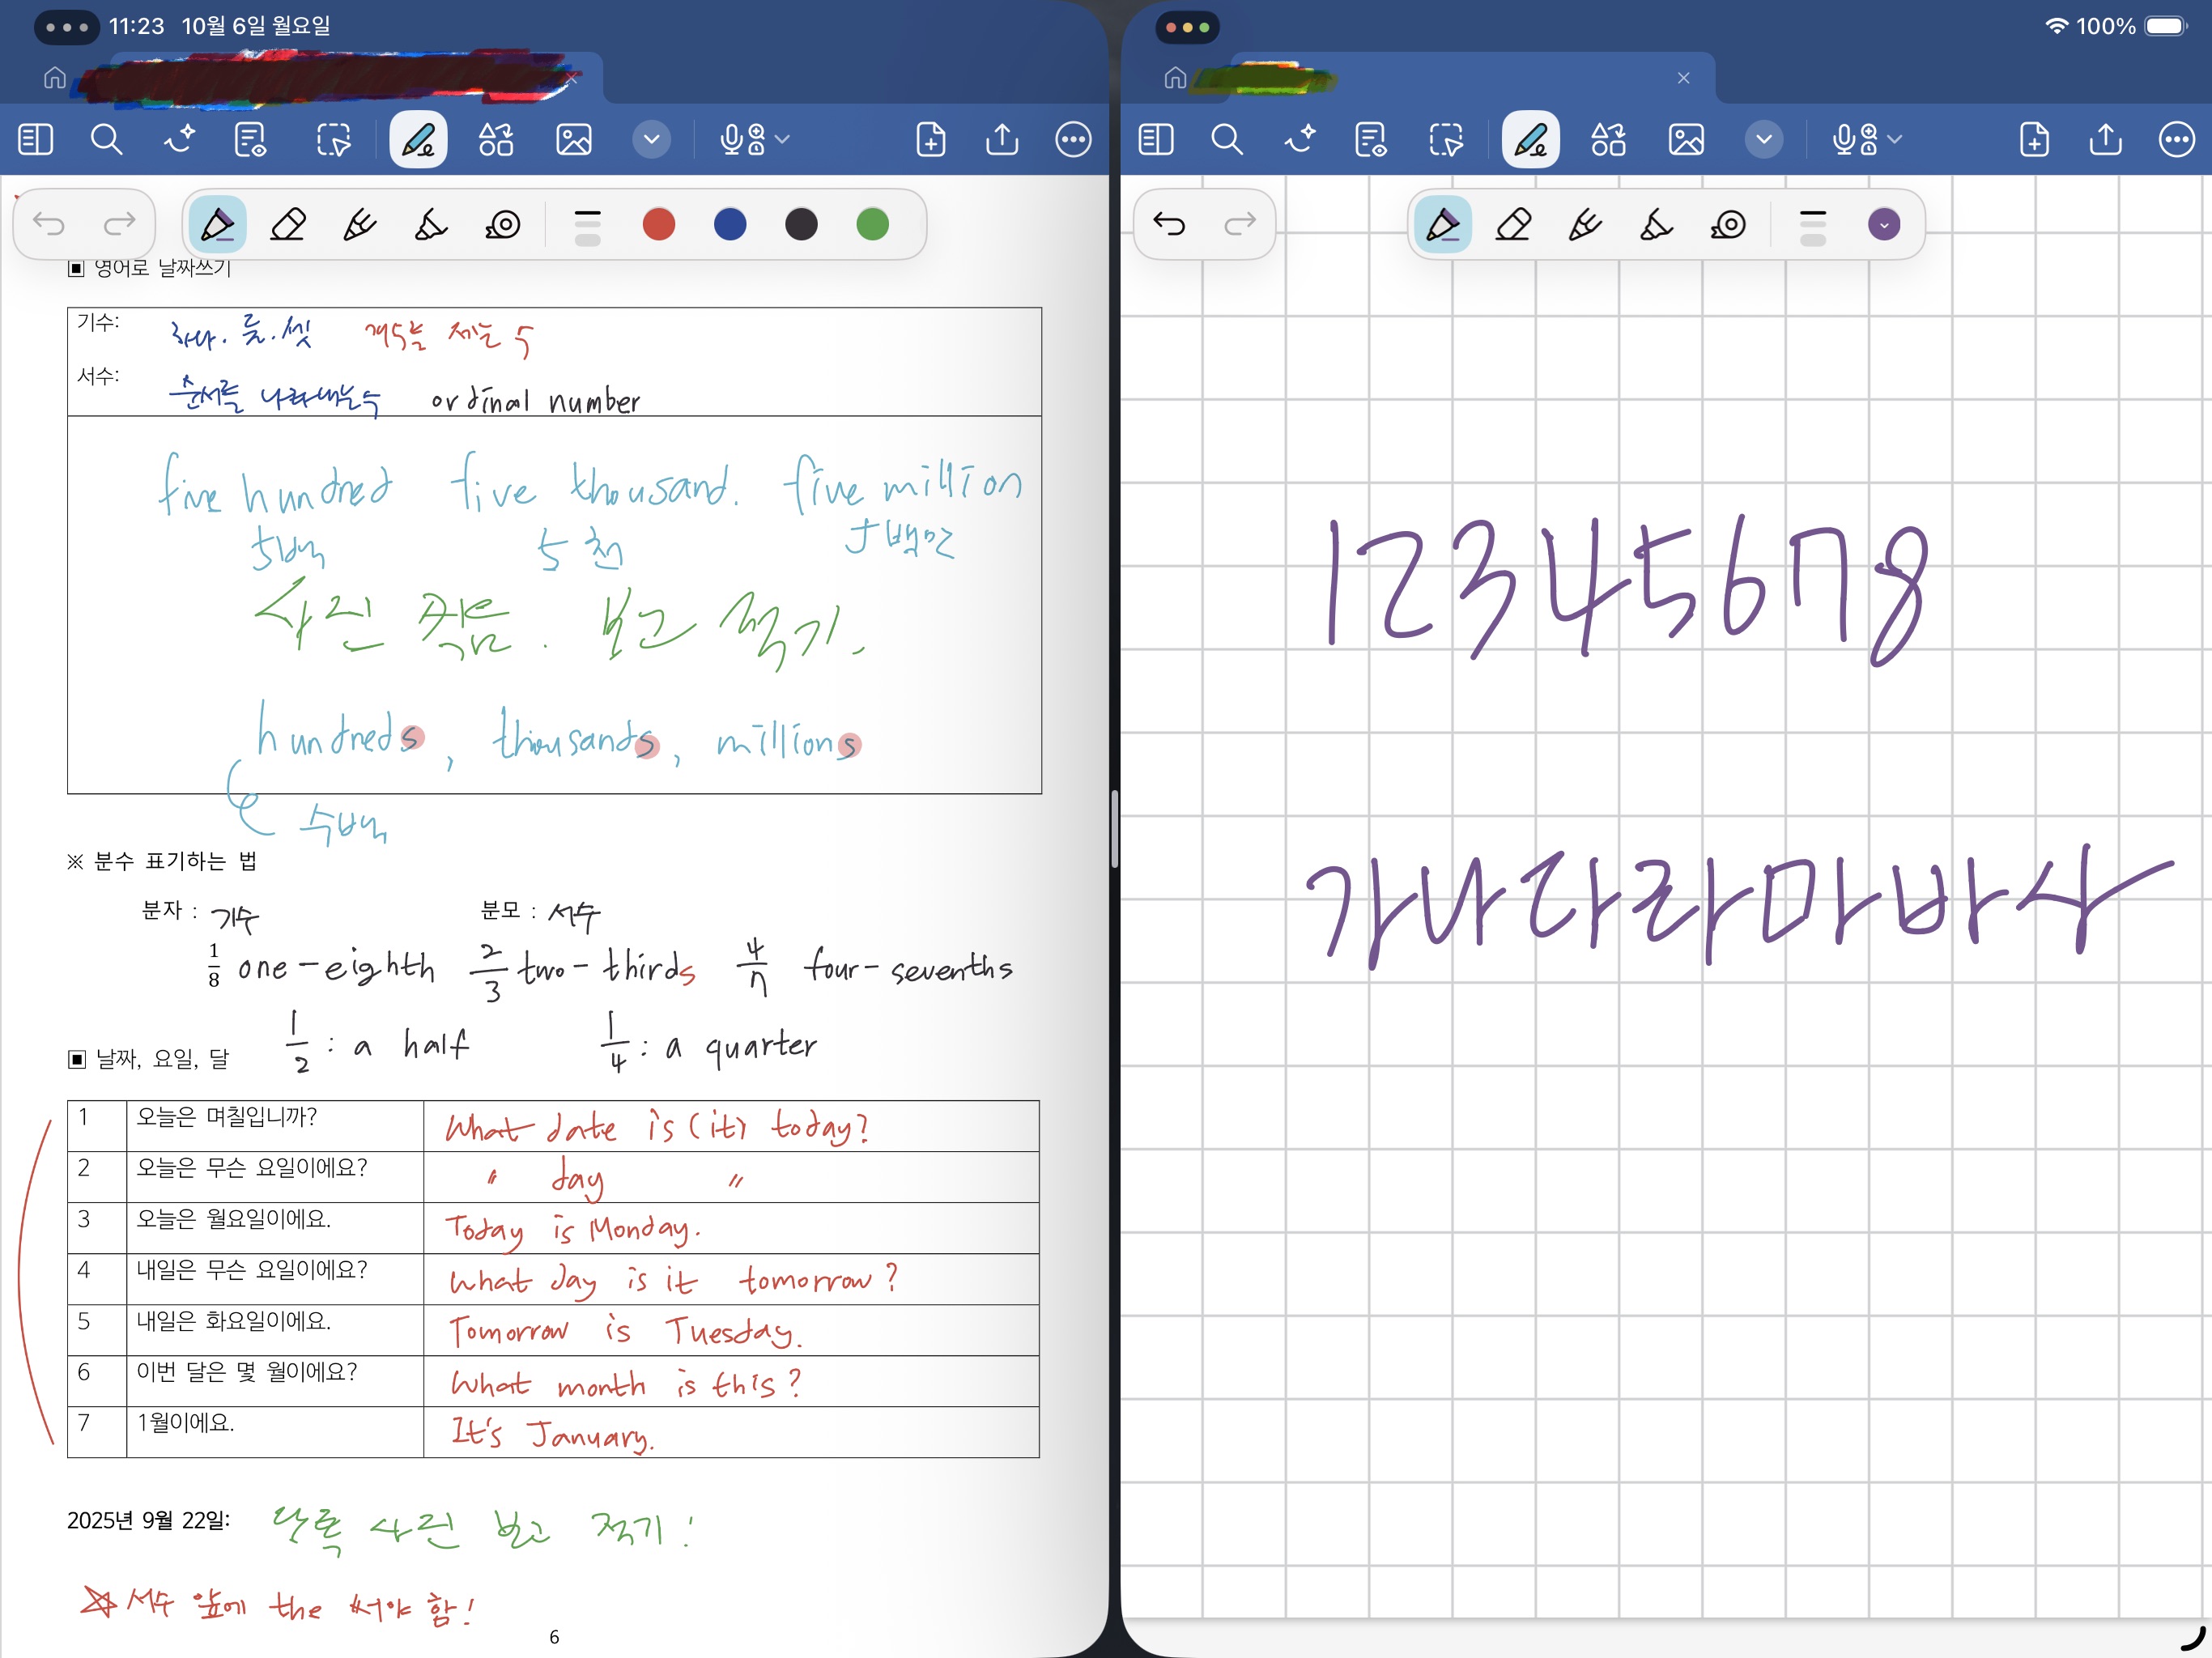 11:23 10월 6일 월요일
100%
▣ 영어로 날짜쓰기
기수: 하나. 둘. 셋 개수를 세는 수
서수: 순서를 나타내는 수 ordinal number
five hundred five thousand. five million
5백 5천 5백만
사진 찍음. 보고 적기.
hundreds, thousands, millions
수백
※ 분수 표기하는 법
분자 : 기수 분모 : 서수
1/8 one-eighth 2/3 two-thirds 4/7 four-sevenths
1/2 : a half 1/4 : a quarter
▣ 날짜, 요일, 달
1 오늘은 며칠입니까? What date is (it) today?
2 오늘은 무슨 요일이에요? " day "
3 오늘은 월요일이에요. Today is Monday.
4 내일은 무슨 요일이에요? What day is it tomorrow?
5 내일은 화요일이에요. Tomorrow is Tuesday.
6 이번 달은 몇 월이에요? What month is this?
7 1월이에요. It's January.
2025년 9월 22일: 사진 보고 적기!
☆ 서수 앞에 the 써야 함!
6
12345678
가나다라마바사